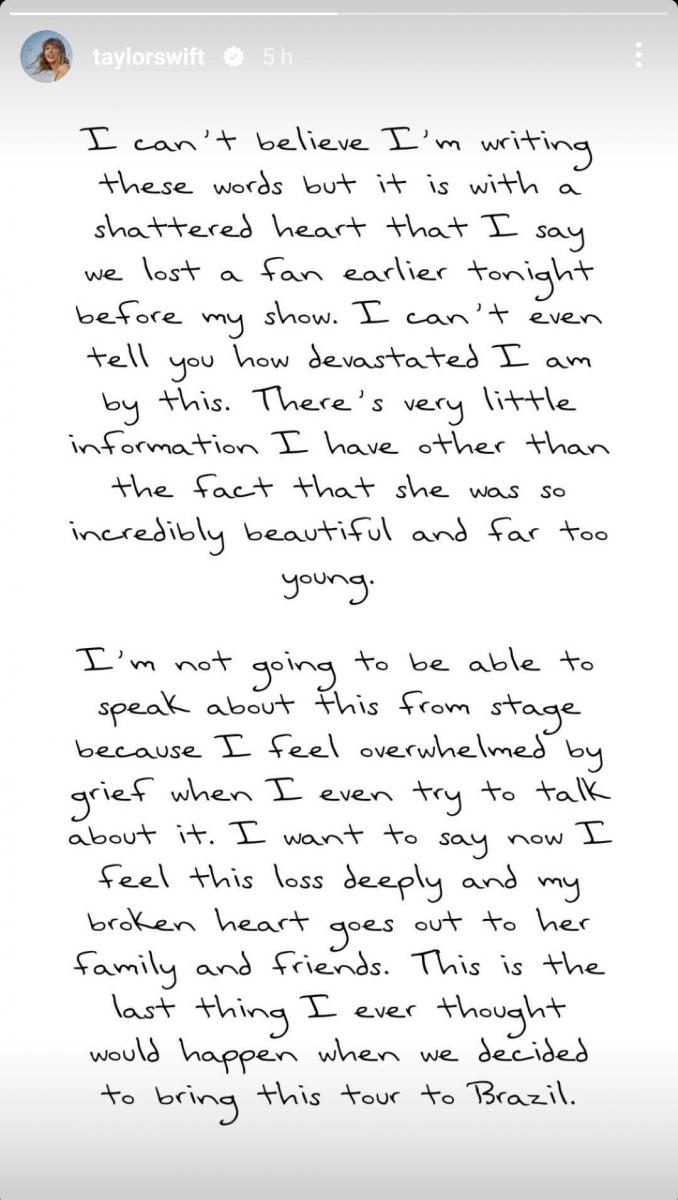 taylorswift 5 h
I can't believe I'm writing
these words but it is with a
shattered heart that I say
we lost a fan earlier tonight
before my show. I can't even
tell you how devastated I am
by this. There's very little
information I have other than
the fact that she was so
incredibly beautiful and far too
young.
I'm not going to be able to
speak about this from stage
because I feel overwhelmed by
grief when I even try to talk
about it. I want to say now I
feel this loss deeply and my
broken heart goes out to her
family and friends. This is the
last thing I ever thought
would happen when we decided
to bring this tour to Brazil.